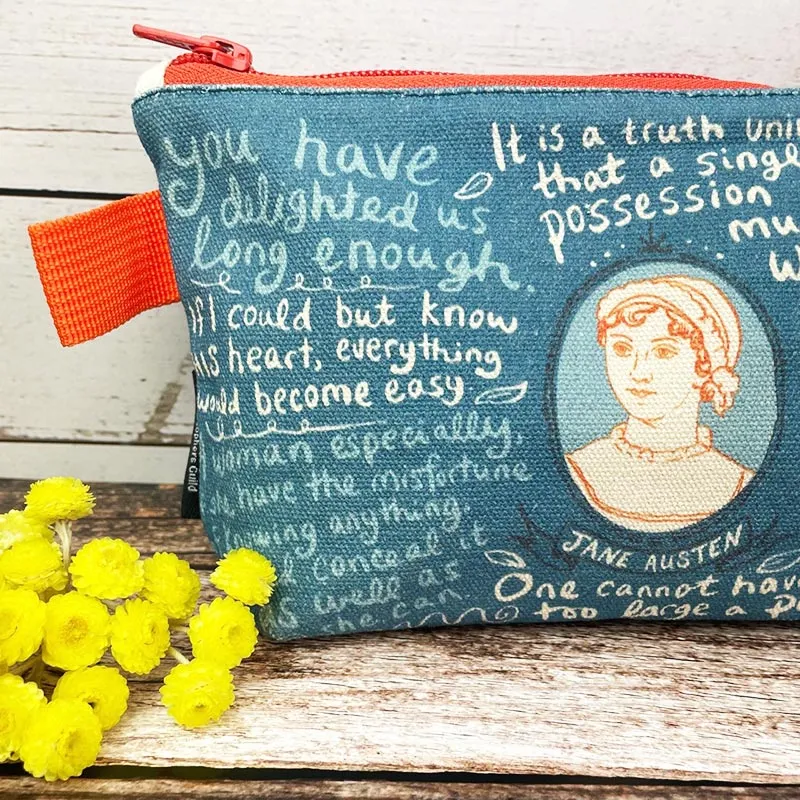 you have
delighted us
long enough.
If I could but know
his heart, everything
would become easy
woman especially,
have the misfortune
knowing anything,
conceal it
as well as
she can
It is a truth uni
that a singl
possession
mu
w
JANE AUSTEN
One cannot have
too large a p
phers Guild